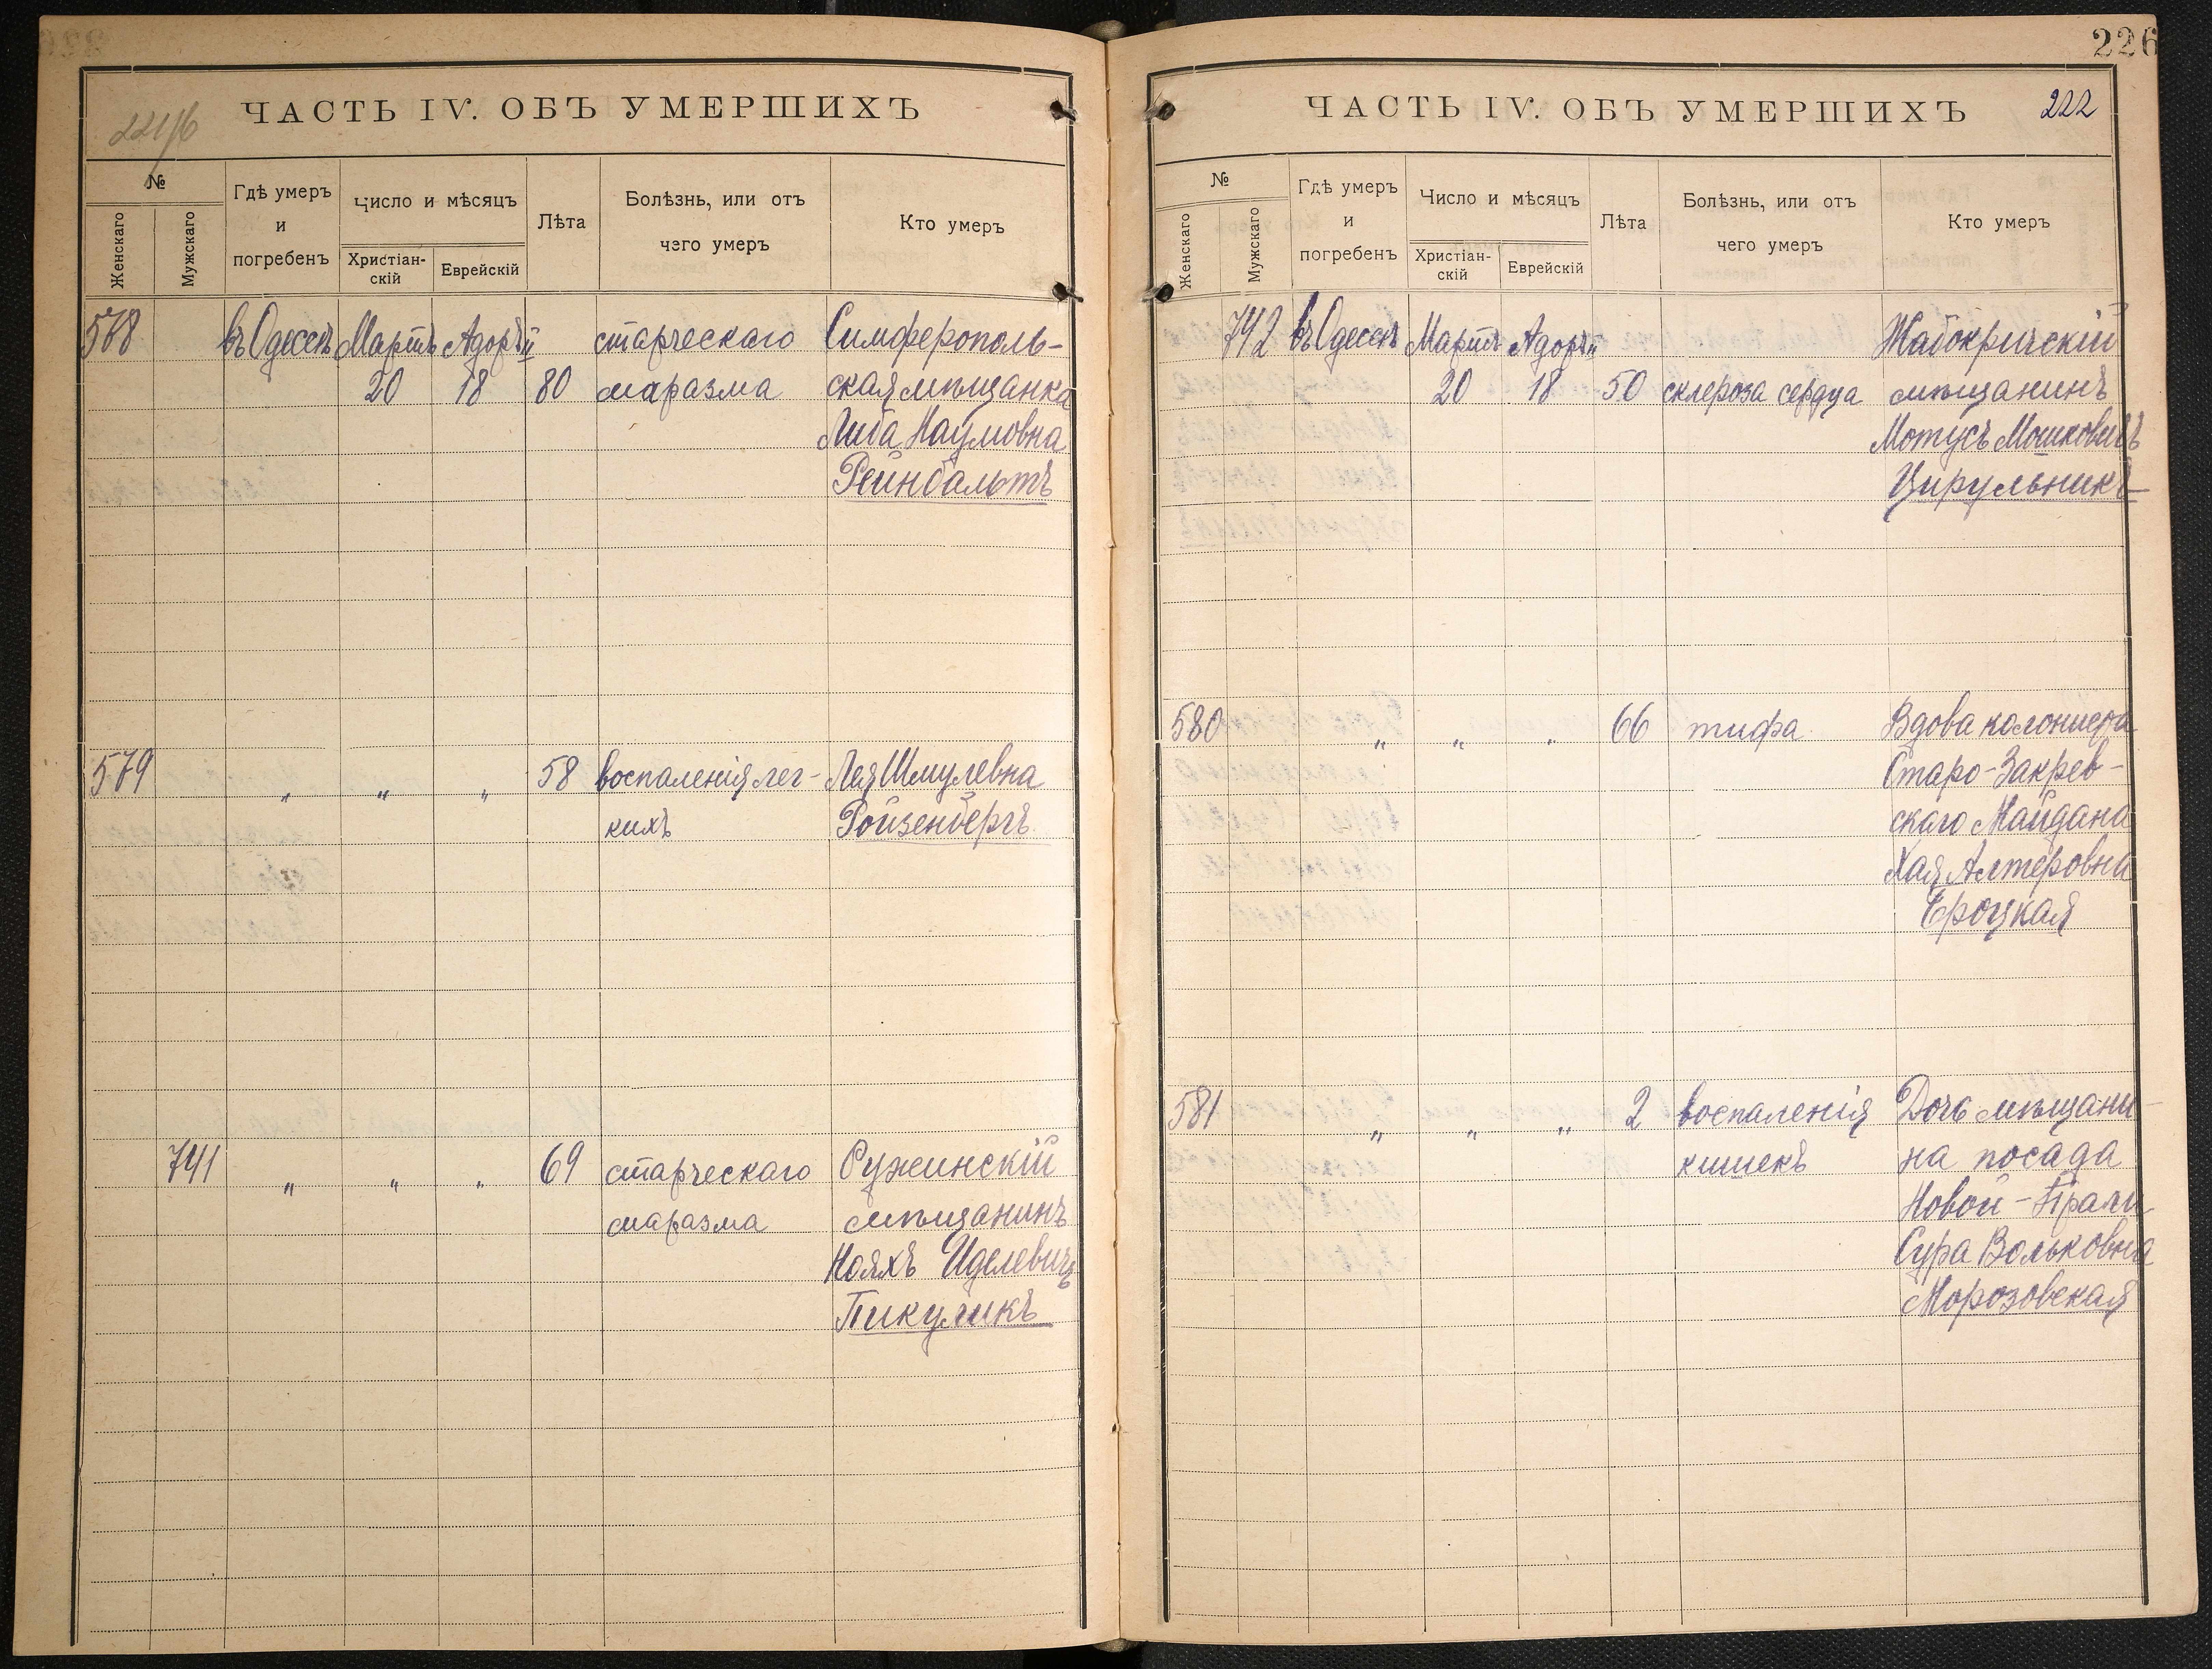 221/б
ЧАСТЬ IV. ОБЪ УМЕРШИХЪ
№
Женскаго
Мужскаго
Гдѣ умеръ
и
погребенъ
Число и мѣсяцъ
Христіан-
скій
Еврейскій
Лѣта
Болѣзнь, или отъ
чего умеръ
Кто умеръ
578 въ Одессѣ Мартъ Адоръ II старческаго Симферополь-
20 18 80 маразма ская мѣщанка
Либа Наумовна
Рейнбальтъ
579 " " " 58 воспаленія лег- Лея Шмулевна
кихъ Ройзенбергъ
741 " " " 69 старческаго Ружинскій
маразма мѣщанинъ
Нояхъ Иделевичъ
Пикуликъ
226
ЧАСТЬ IV. ОБЪ УМЕРШИХЪ
222
№
Женскаго
Мужскаго
Гдѣ умеръ
и
погребенъ
Число и мѣсяцъ
Христіан-
скій
Еврейскій
Лѣта
Болѣзнь, или отъ
чего умеръ
Кто умеръ
742 въ Одессѣ Мартъ Адоръ II Жабокричскій
20 18 50 склероза сердца мѣщанинъ
Мотусъ Мошковичъ
Цирульникъ
580 " " " 66 тифа Вдова колониста
Старо-Закрев-
скаго Майдана
Хая Алтеровна
Троцкая
581 " " " 2 воспаленія Дочь мѣщани-
кишекъ на посада
Новой-Праги
Сура Вольковна
Морозовская